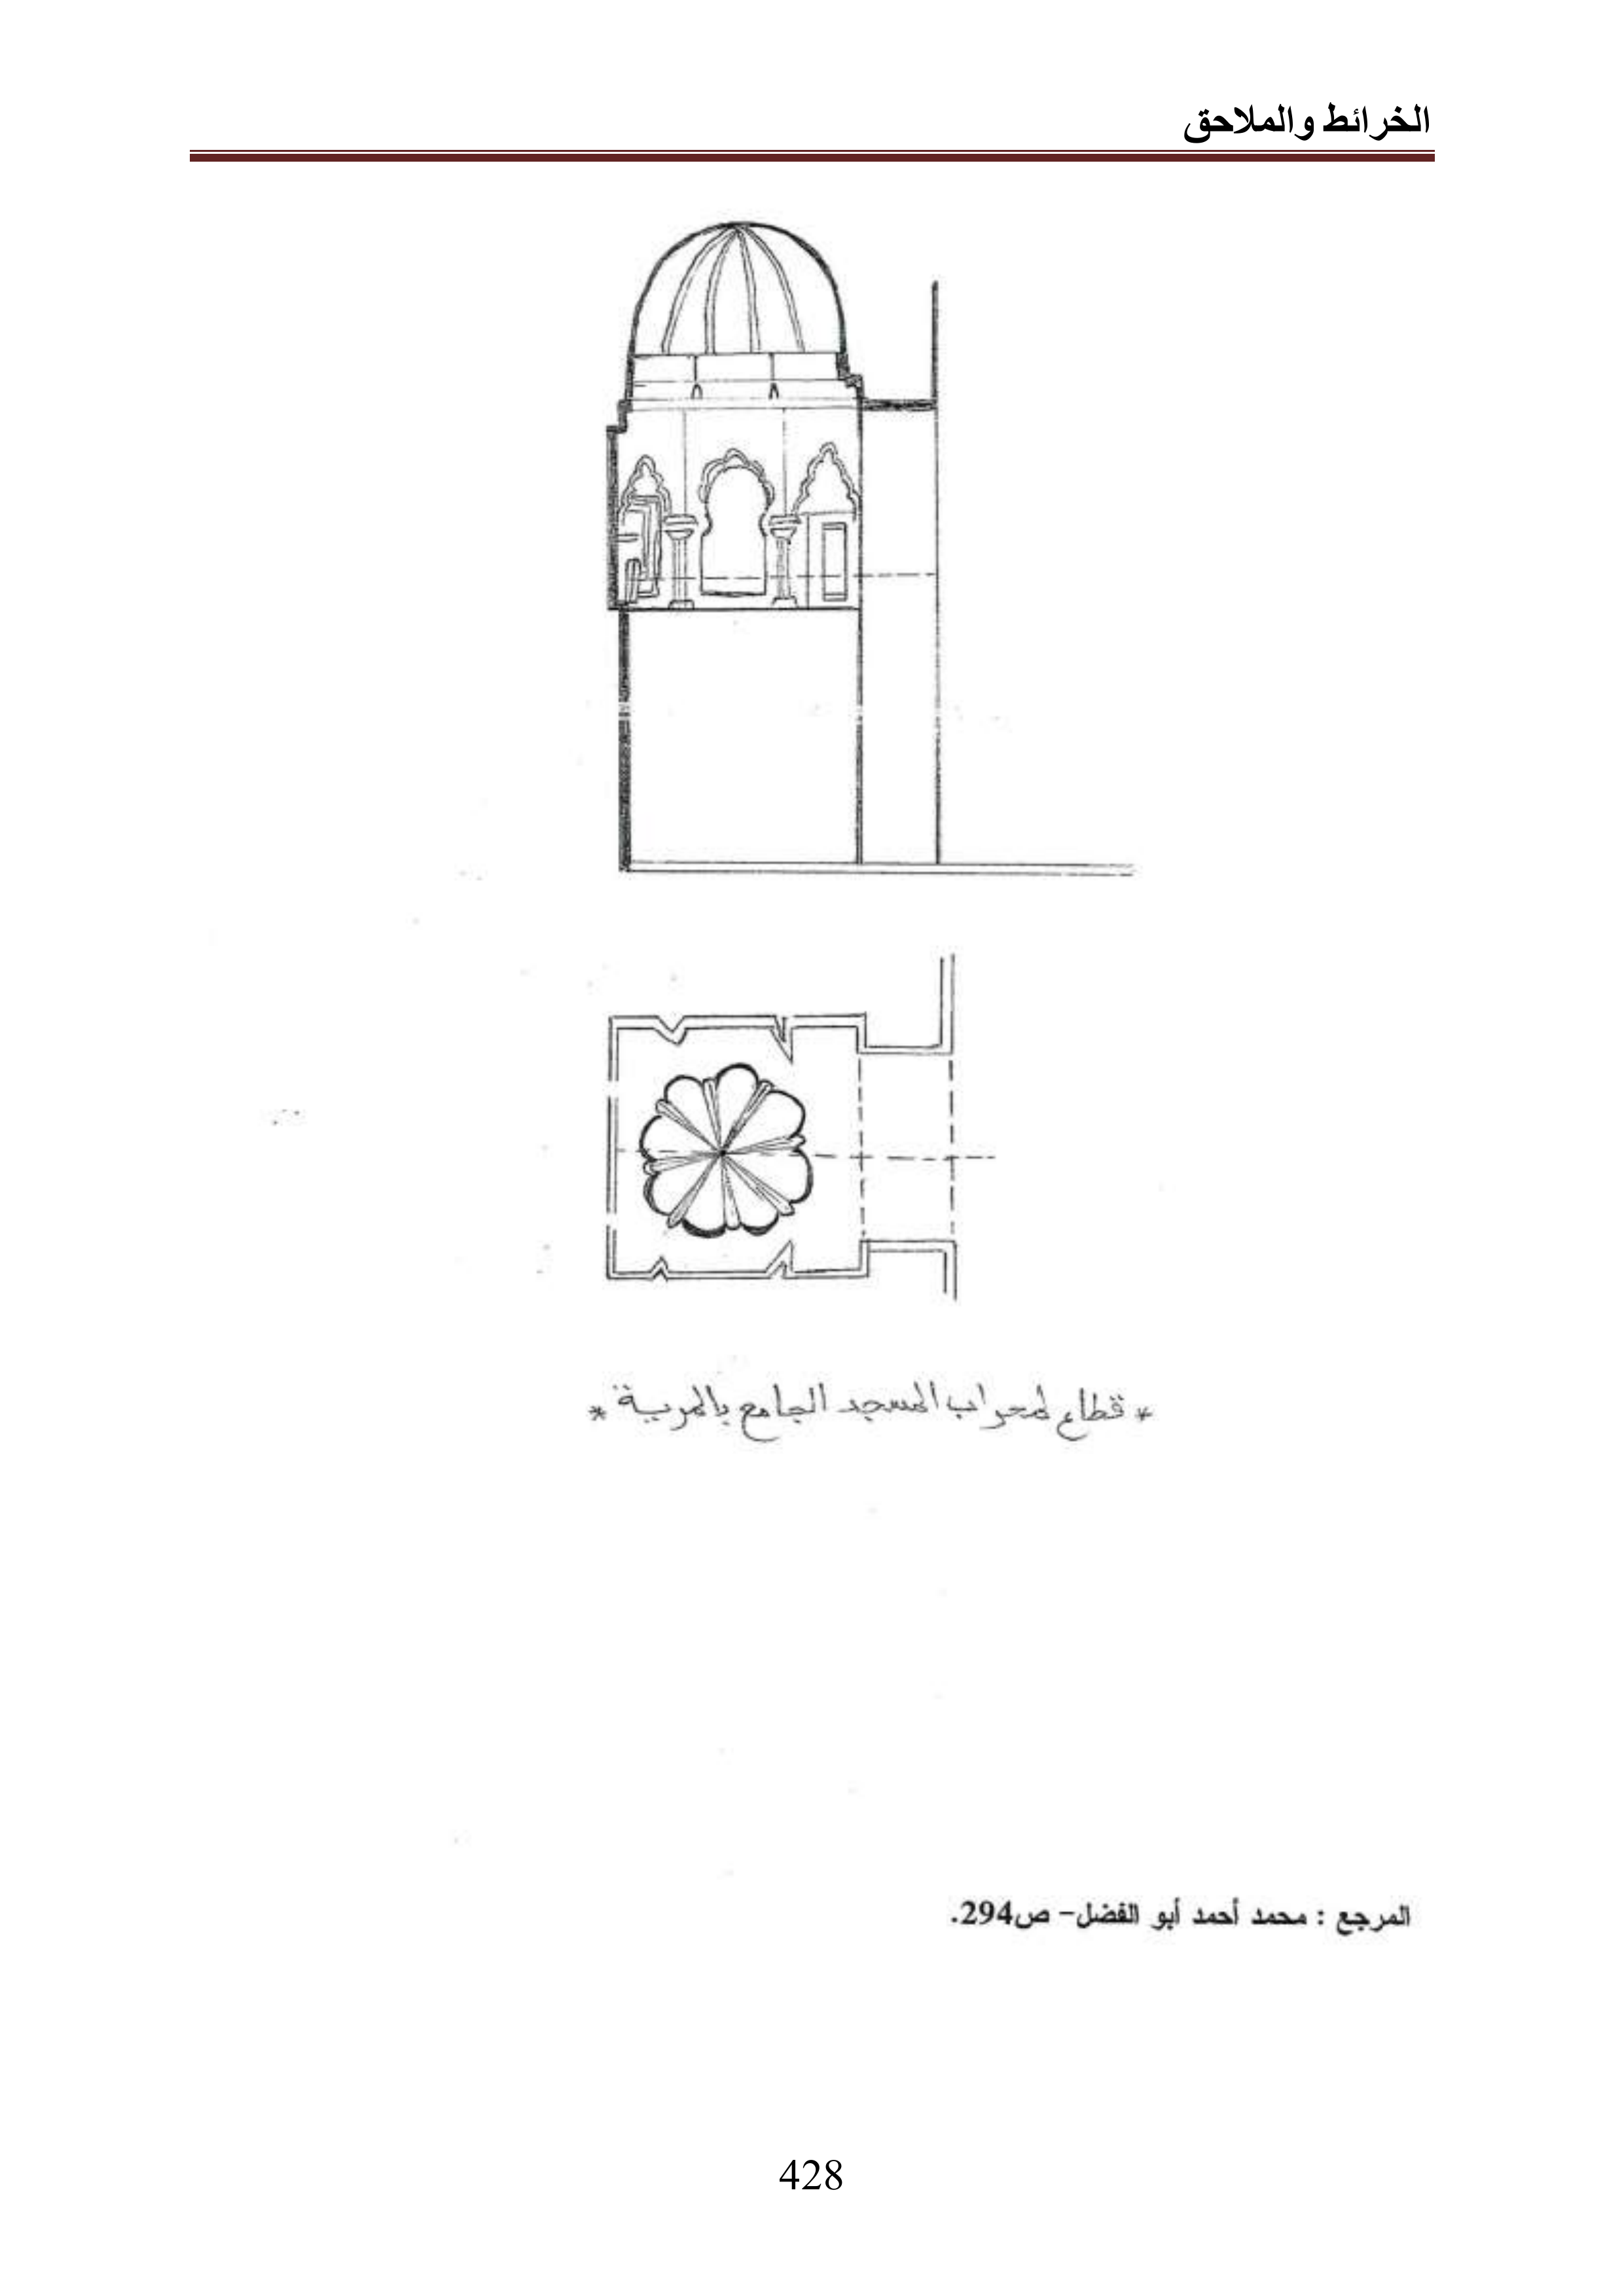 الخرائط والملاحق
* قطاع لمحراب المسجد الجامع بالمرية *
المرجع : محمد أحمد أبو الفضل- ص294.
428